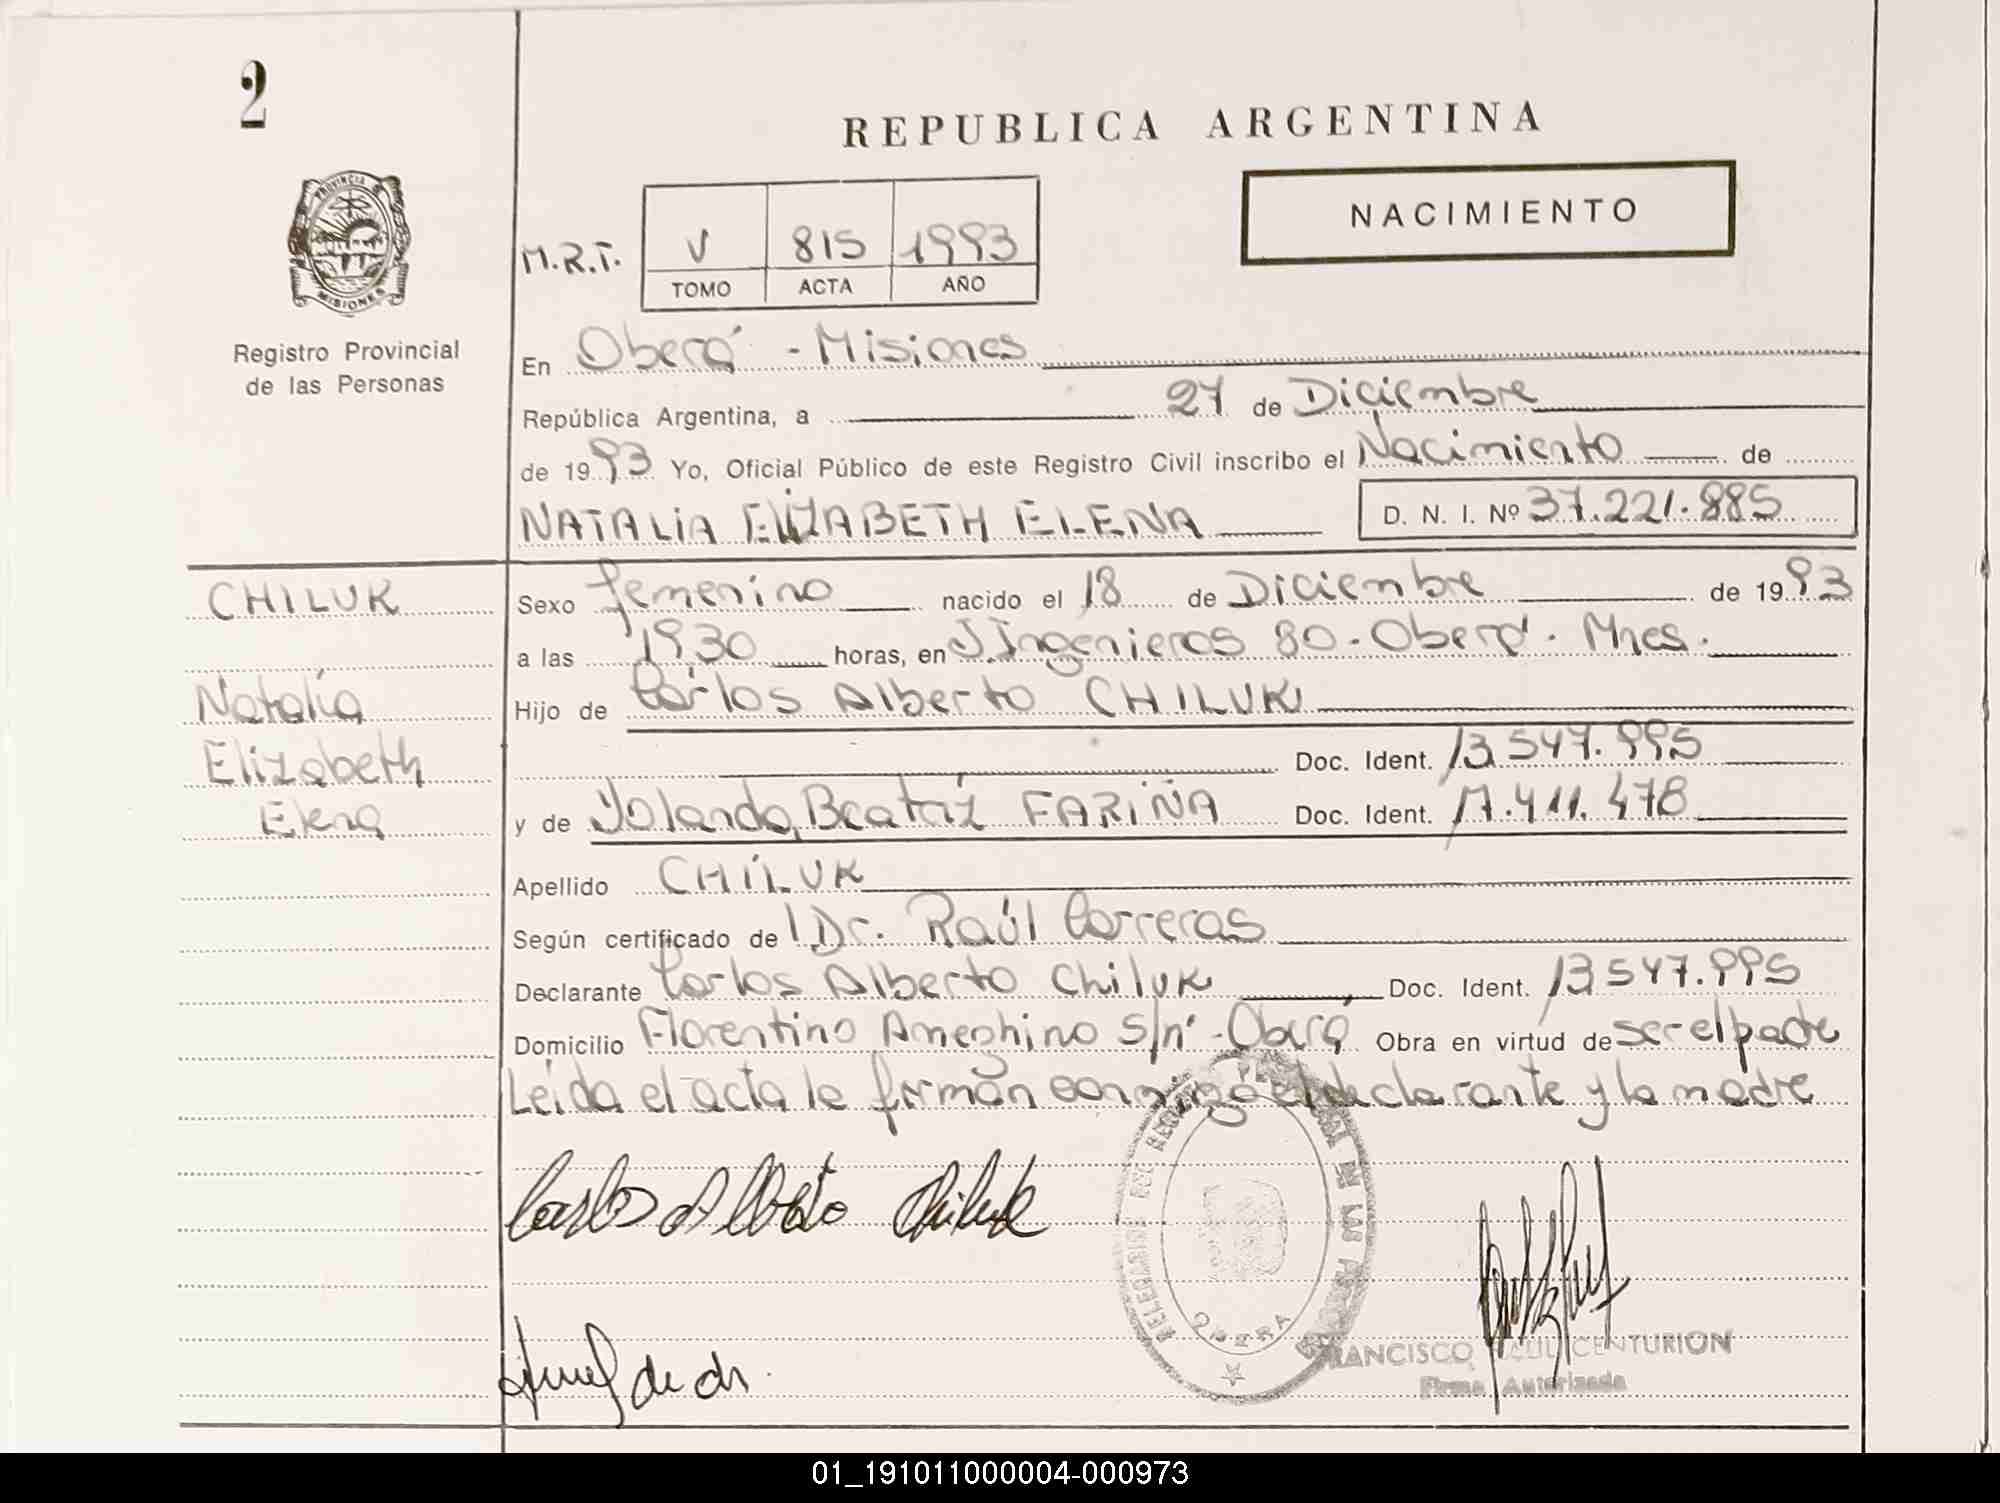 2
REPUBLICA ARGENTINA
NACIMIENTO
PROVINCIA DE
MISIONES
M.R.T.
V 815 1993
TOMO ACTA AÑO
Registro Provincial
de las Personas
En Oberá - Misiones
República Argentina, a 27 de Diciembre
de 1993 Yo, Oficial Público de este Registro Civil inscribo el Nacimiento de
NATALIA ELIZABETH ELENA D. N. I. Nº 37.221.885
CHILUK
Natalia
Elizabeth
Elena
Sexo femenino nacido el 18 de Diciembre de 1993
a las 1930 horas, en J.Ingenieros 80 - Oberá - Mnes.
Hijo de Carlos Alberto CHILUK
Doc. Ident. 13.547.995
y de Yolanda Beatriz FARIÑA Doc. Ident. 17.411.478
Apellido CHILUK
Según certificado de Dr. Raúl Carreras
Declarante Carlos Alberto Chiluk Doc. Ident. 13.547.995
Domicilio Florentino Ameghino s/nº - Oberá Obra en virtud de ser el padre
Leída el acta la firman conmigo el declarante y la madre
Carlos Alberto Chiluk
DELEGACION DEL REGISTRO DE LAS
OBERA
FRANCISCO RAUL CENTURION
Firma Autorizada
01_191011000004-000973